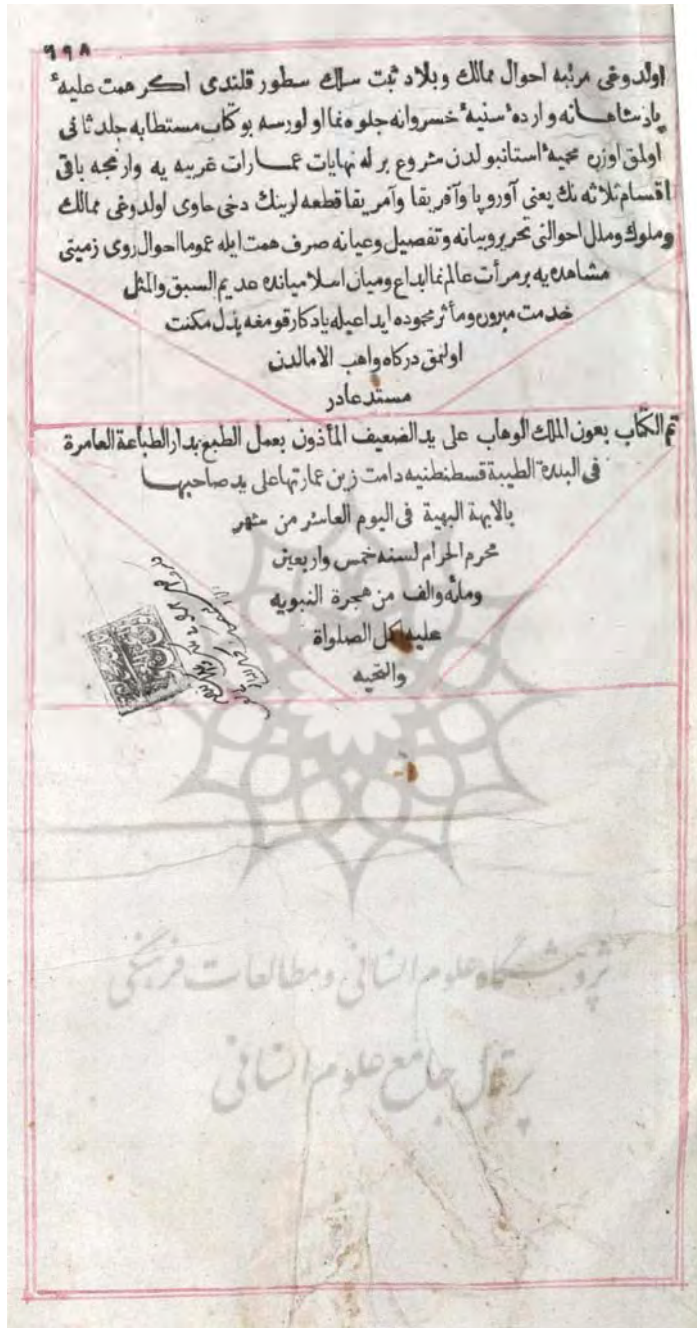 ٦٩٨
اولدوغی مرتبه احوال ممالك وبلاد ثبت سلك سطور قلندی اكر همت عليهٔ
پادشاهانه واردهٔ سنیهٔ خسروانه جلوه نما اولورسه بو كتاب مستطابه جلد ثانی
اولمق اوزره محمیهٔ استانبولدن مشروع برله نهایات عمارات غربیه یه وارنجه باقی
اقسام ثلاثه نك یعنی آوروپا وآفریقا وآمریقا قطعه لرینك دخی حاوی اولدوغی ممالك
وملوك وملل احوالنی تحریر وبیانه وتفصیل وعیانه صرف همت ایله عموما احوال روی زمینی
مشاهده یه بر مرأت عالم نما ابداع ومیان اسلامیانده عدیم السبق والمثل
خدمت مبروره ومأثر محموده ایداعیله یادكار قومغه بذل مكنت
اولنمق دركاه واهب الامالدن
مستدعادر
تم الكتاب بعون الملك الوهاب علی ید الضعیف المأذون بعمل الطبع بدار الطباعة العامرة
فی البلدة الطیبة قسطنطنیه دامت زین عمارتها علی ید صاحبها
بالابهة البهیة فی الیوم العاشر من شهر
محرم الحرام لسنه خمس واربعین
ومائه والف من هجرة النبویه
علیه اكمل الصلواة
والتحیه
پژوهشگاه علوم انسانی و مطالعات فرهنگی
پرتال جامع علوم انسانی